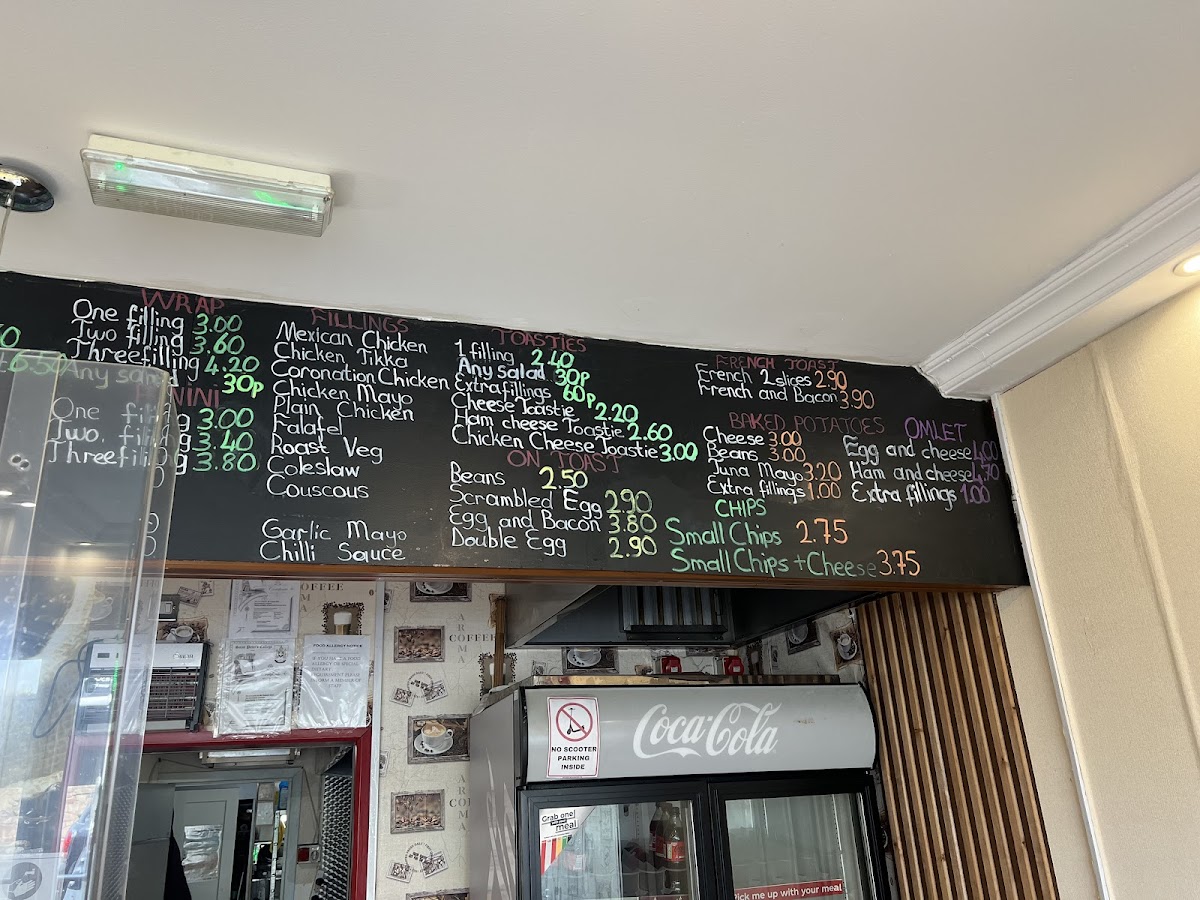 WRAP
One filling 3.00
Two filling 3.60
Three filling 4.20
Any salad 30p
NINI
One filling 3.00
Two. filling 3.40
Three filling 3.80
FILLINGS
Mexican Chicken
Chicken Tikka
Coronation Chicken
Chicken Mayo
Plain Chicken
Falafel
Roast Veg
Coleslaw
Couscous
Garlic Mayo
Chilli Sauce
TOASTIES
1 filling 2.40
Any salad 30p
Extra fillings 60p
Cheese Toastie 2.20
Ham cheese Toastie 2.60
Chicken Cheese Toastie 3.00
ON TOAST
Beans 2.50
Scrambled Egg 2.90
Egg and Bacon 3.80
Double Egg 2.90
FRENCH TOAST
French 2 slices 2.90
French and Bacon 3.90
BAKED POTATOES
Cheese 3.00
Beans 3.00
Tuna Mayo 3.20
Extra fillings 1.00
OMLET
Egg and cheese 4.00
Ham and cheese 4.70
Extra fillings 1.00
CHIPS
Small Chips 2.75
Small Chips + Cheese 3.75
6.50
COFFEE
FOOD ALLERGY NOTICE
COFFEE
NO SCOOTER
PARKING
INSIDE
Coca-Cola
Grab one
meal
Pick me up with your meal